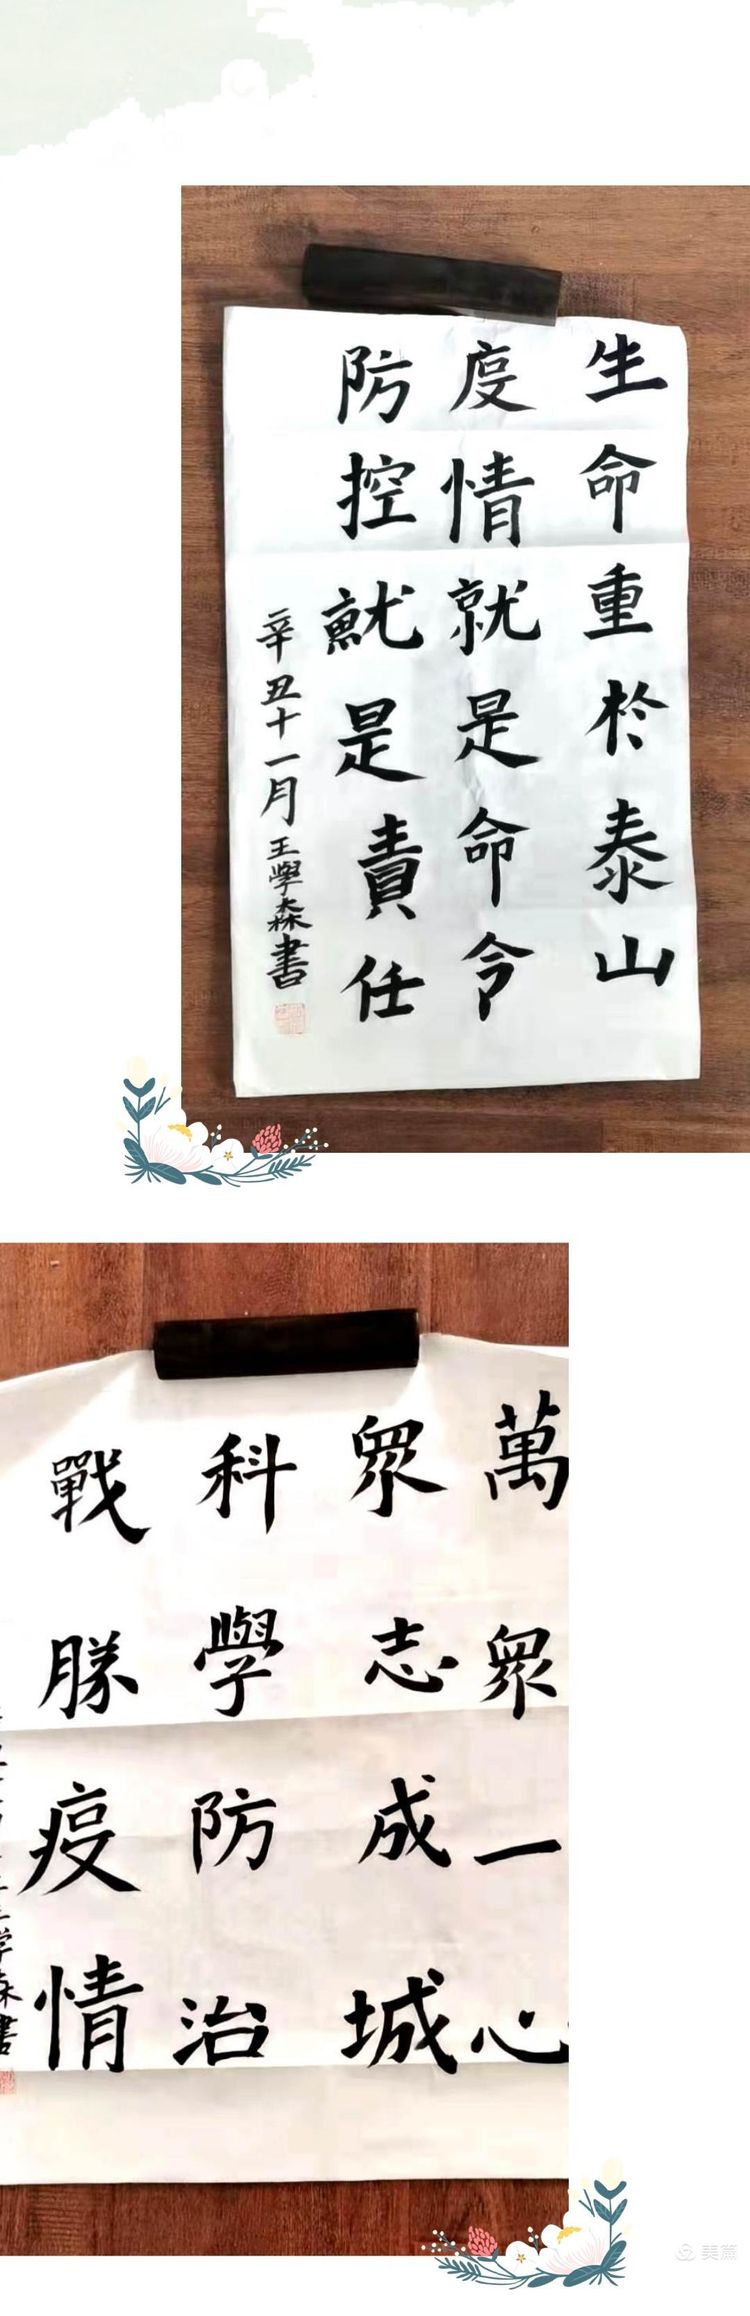 生命重於泰山
疫情就是命令
防控就是責任
辛丑十一月王學森書
萬眾一心
眾志成城
科學防治
戰勝疫情
学森書
美篇